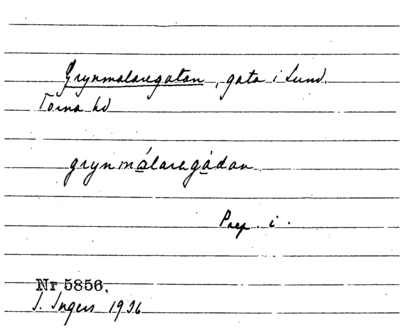 Grynmalaregatan, gata i Lund.
Torna hd
grynmálaregádan
Prep. i.
Nr 5856.
I. Ingers 1936